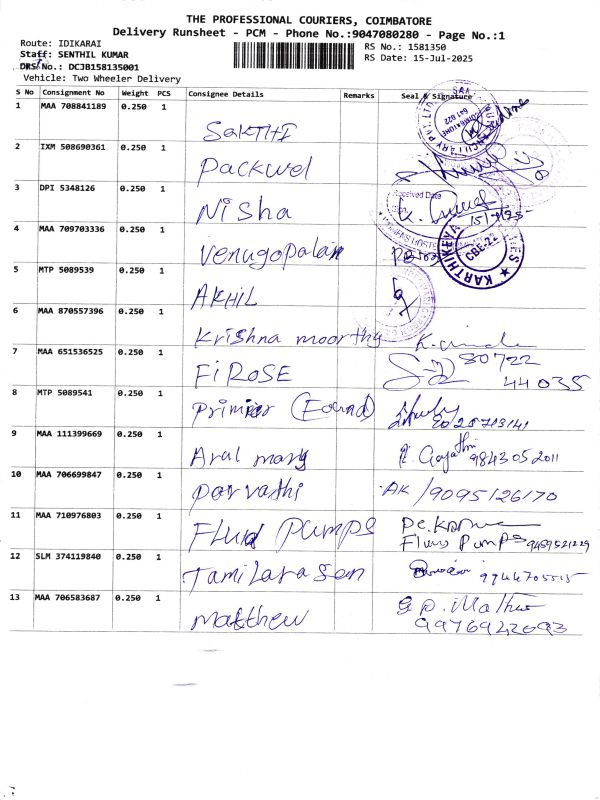 THE PROFESSIONAL COURIERS, COIMBATORE
Delivery Runsheet - PCM - Phone No.:9047080280 - Page No.:1
Route: IDIKARAI
RS No.: 1581350
Staff: SENTHIL KUMAR
RS Date: 15-Jul-2025
DRS No.: DCJB158135001
Vehicle: Two Wheeler Delivery
S No Consignment No Weight PCS Consignee Details Remarks Seal & Signature
1 MAA 708841189 0.250 1 SAKTHI
2 IXM 508690361 0.250 1 Packwel
3 DPI 5348126 0.250 1 Nisha
Received Date
4 MAA 709703336 0.250 1 Venugopalan
CBE-22
5 MTP 5089539 0.250 1 AKHIL
6 MAA 870557396 0.250 1 Krishna moorthy
7 MAA 651536525 0.250 1 FiROSE 80722
44035
8 MTP 5089541 0.250 1 Primier (Found)
9 MAA 111399669 0.250 1 Aral mary Gayathri
9843052011
10 MAA 706699847 0.250 1 Parvathi AK /9095126170
11 MAA 710976803 0.250 1 Fluid Pumps
Pumps
12 SLM 374119840 0.250 1 Tamilarasan
13 MAA 706583687 0.250 1 Matthew G.P. Mathew
9976942093